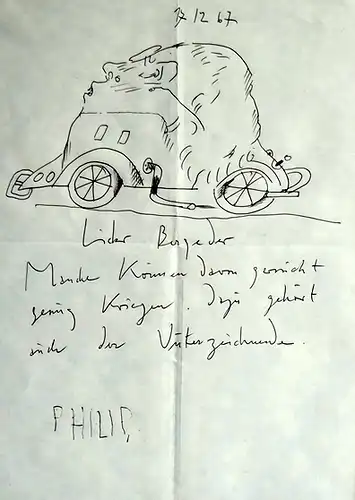 7 12 67
Lieber Bergeder
Manche Können davon garnicht
genug Kriegen. Dazu gehört
auch der Unterzeichnende.
PHILIP.